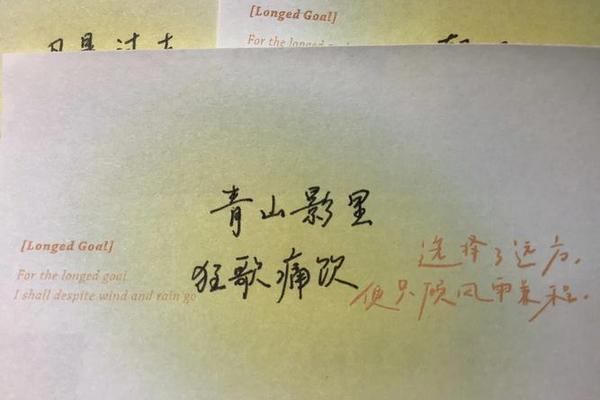 [Longed Goal]
For the longed goal
凡是过去
青山影里
狂歌痛饮
[Longed Goal]
For the longed goal
I shall despite wind and rain go
选择了远方,
便只顾风雨兼程.